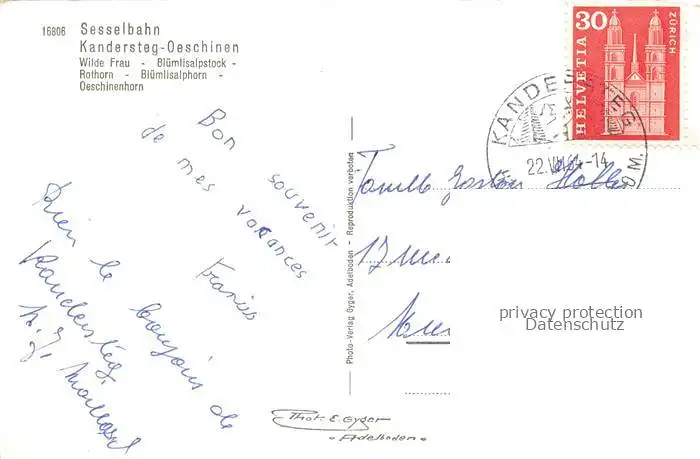 16806 Sesselbahn
Kandersteg-Oeschinen
Wilde Frau - Blümlisalpstock -
Rothorn - Blümlisalphorn -
Oeschinenhorn
Bon souvenir
de mes vacances
Francis
Bien le bonjour de
Kandersteg
Photo-Verlag Gyger, Adelboden - Reproduktion verboten
HELVETIA 30 ZÜRICH
KANDERSTEG
22.VII.64-14
Famille Gaston
privacy protection
Datenschutz
Phot. E. Gyger
Adelboden